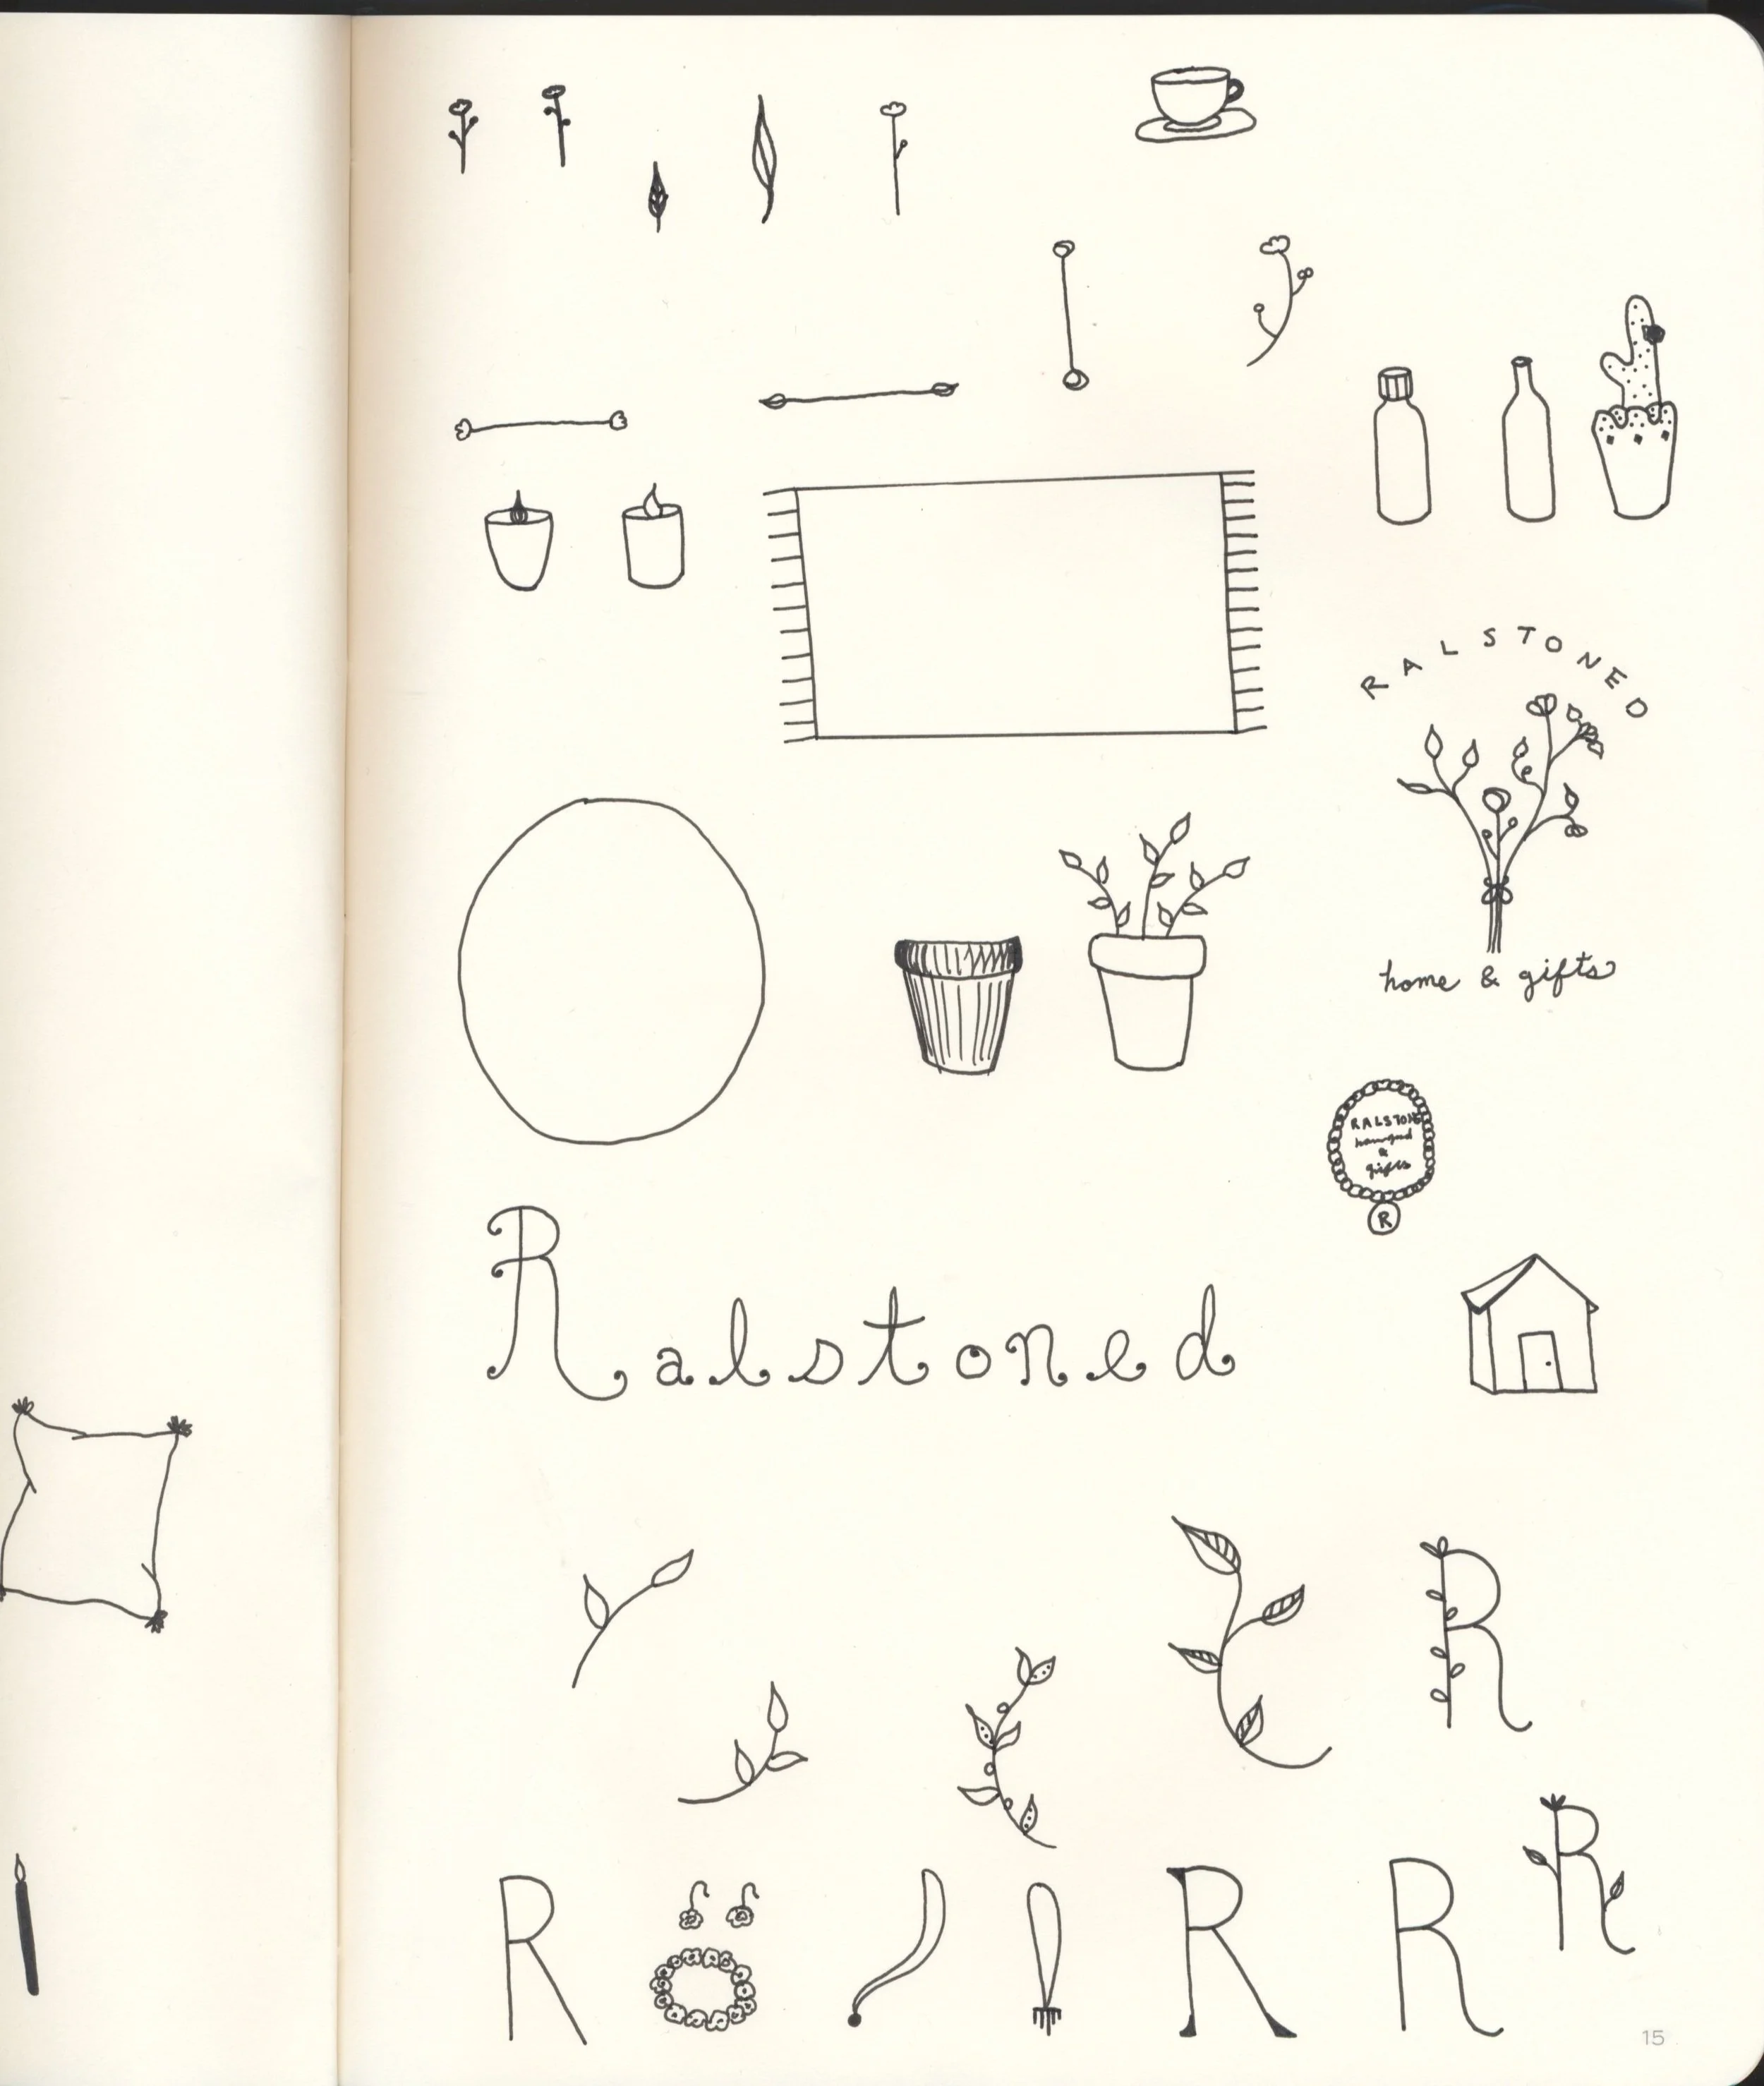 RALSTONED
home & gifts
RALSTONE
&
gifts
R
Ralstoned
R
R
R
R
R
15